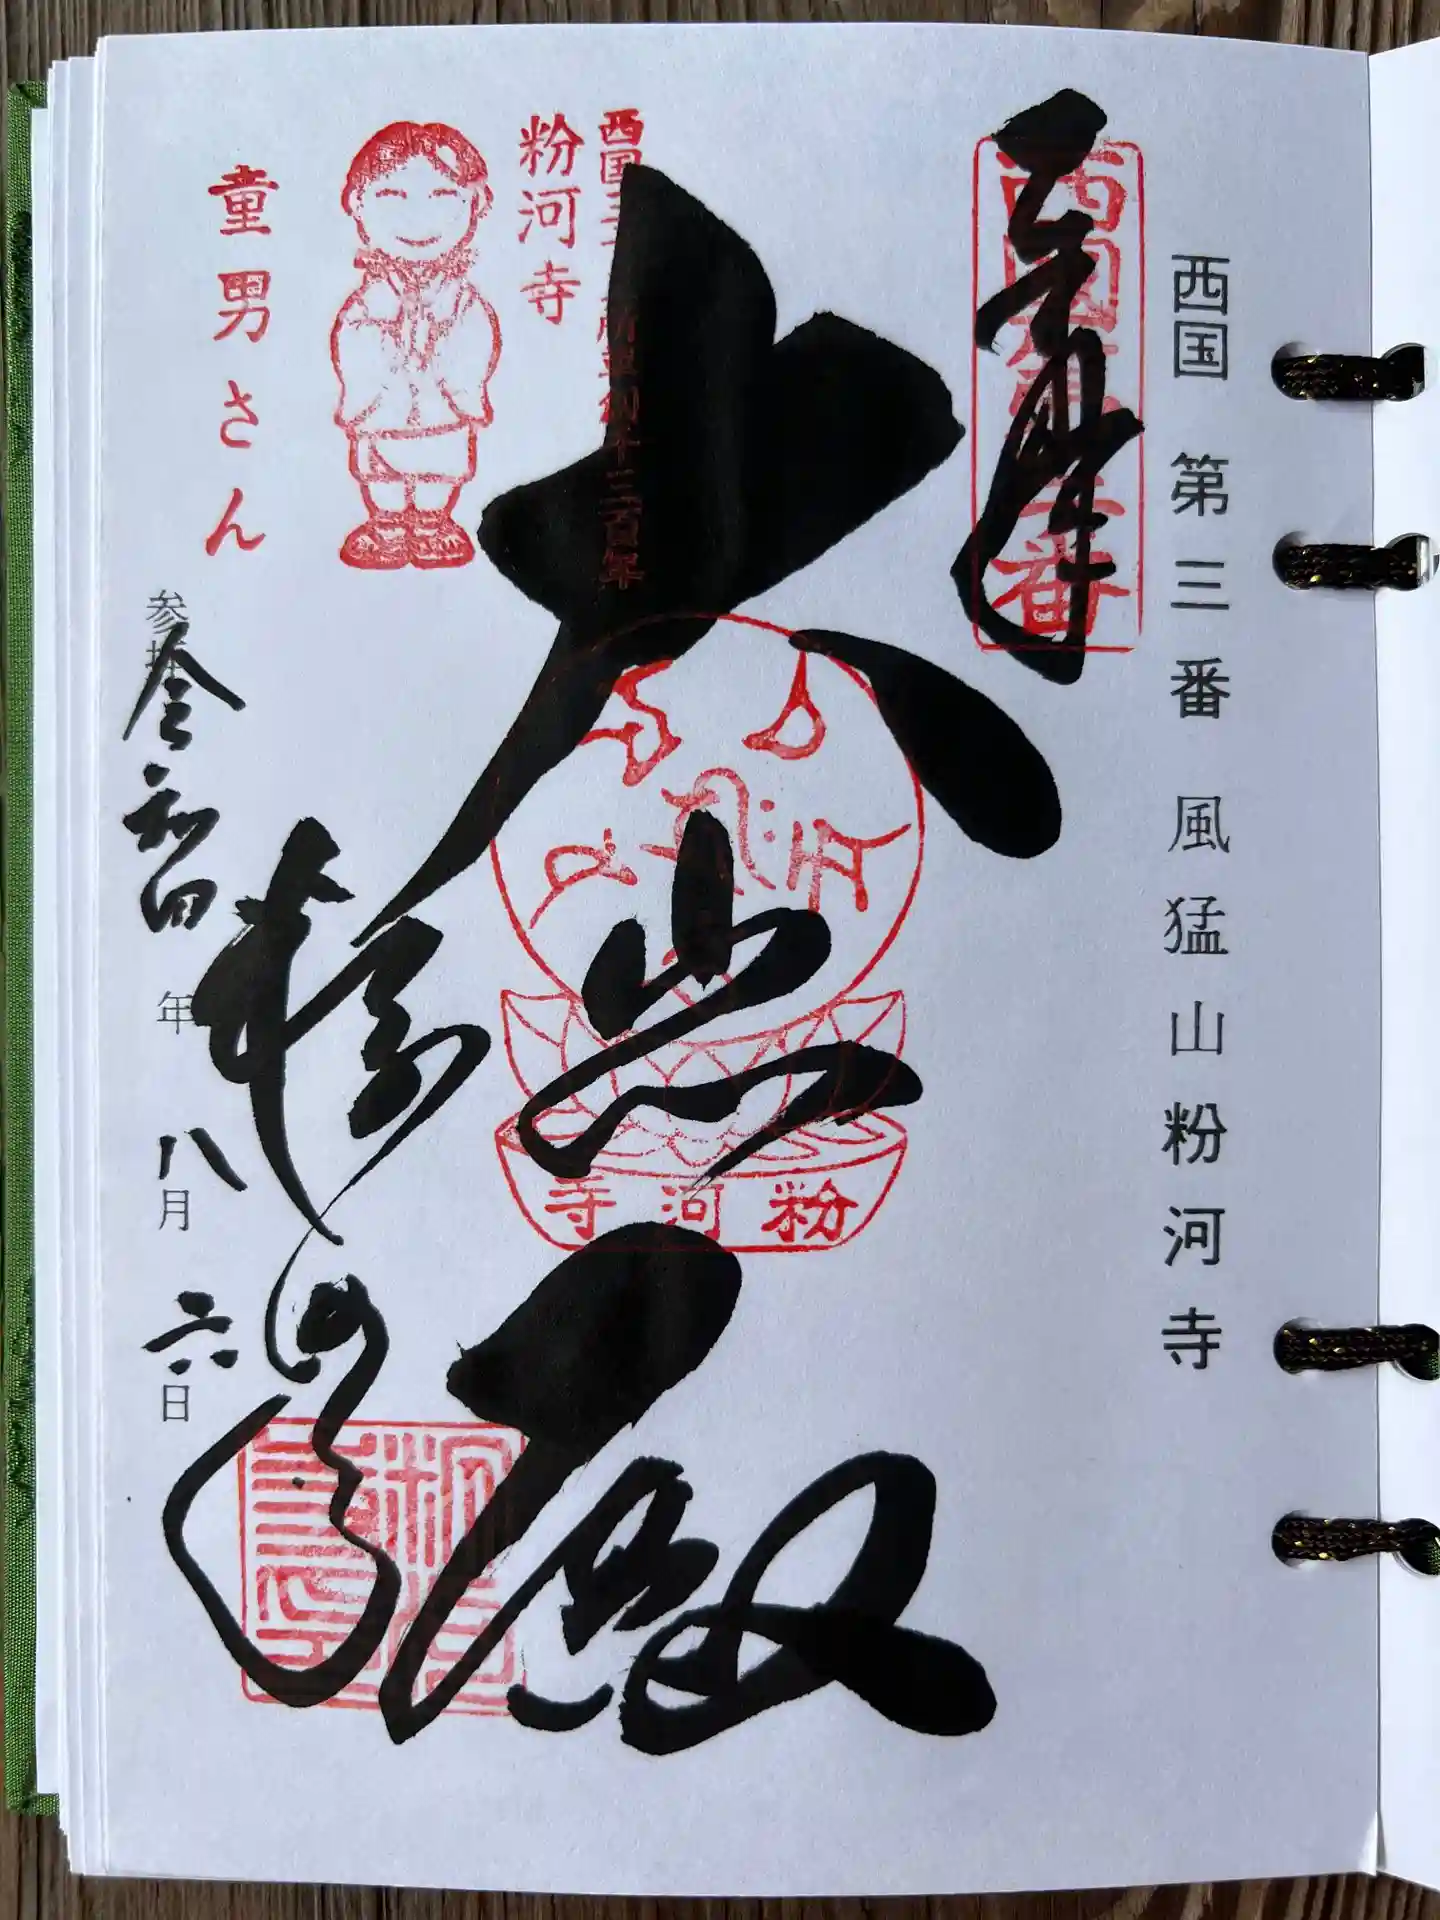 西国 第三番 風猛山粉河寺
奉拝
西國第三番
大悲殿
西国三十三所草創千三百年
粉河寺
童男さん
粉河寺
粉河寺
参拝 令和四年 八月 六日